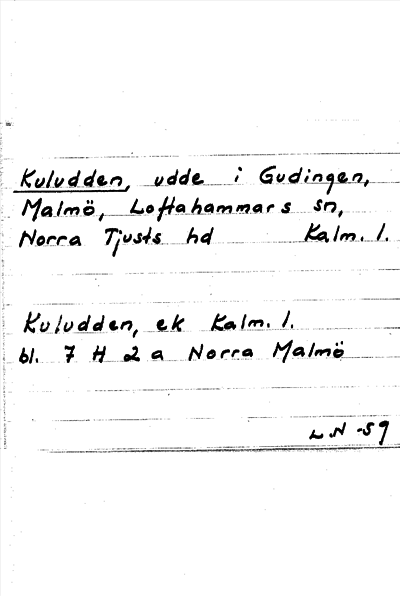 Kuludden, udde i Gudingen,
Malmö, Loftahammars sn,
Norra Tjusts hd Kalm. l.
Kuludden, ek Kalm. l.
bl. 7 H 2 a Norra Malmö
LN -59